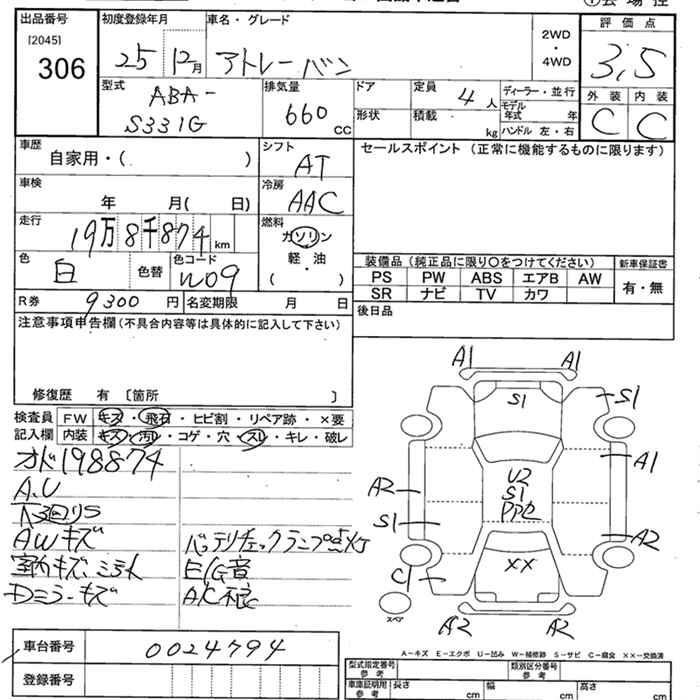 出品番号
[2045]
306
初度登録年月
25 12月
車名・グレード
アトレーバン
2WD
・
4WD
評価点
3,5
外装 内装
C C
型式
ABA-
S331G
排気量
660 cc
ドア
形状
定員 4 人
積載 kg
ディーラー・並行
モデル年式 年
ハンドル 左・右
車歴
自家用・( )
シフト
AT
セールスポイント (正常に機能するものに限ります)
車検
年 月( 日)
冷房
AAC
走行
19万8千874 km
燃料
ガソリン
・
軽・油
( )
色
白
色替
色コード
W09
装備品 (純正品に限り〇をつけてください)
新車保証書
PS PW ABS エアB AW
SR ナビ TV カワ
有・無
R券 9300 円
名変期限 月 日
後日品
注意事項申告欄(不具合内容等は具体的に記入して下さい)
修復歴 有〔箇所 〕
検査員
記入欄
FW キズ・飛石・ヒビ割・リペア跡・×要
内装 キズ・汚れ・コゲ・穴・スレ・キレ・破レ
オド198874
A.U
下回りS
AWキズ
室内キズ、ミラス
Dミラーキズ
バッテリチェックランプ点灯
E/G音
A/C不良
A1 A1
S1
S1
A1
A2
U2
S1
S1
A2
XX
C1
スペア
A2 A2
車台番号 0024794
登録番号
A−キズ E−エクボ U−凹み W−補修跡 S−サビ C−腐食 ××−交換済
型式指定番号
参考
類別区分番号
参考
車庫証明用
参考
長さ cm
幅 cm
高さ cm